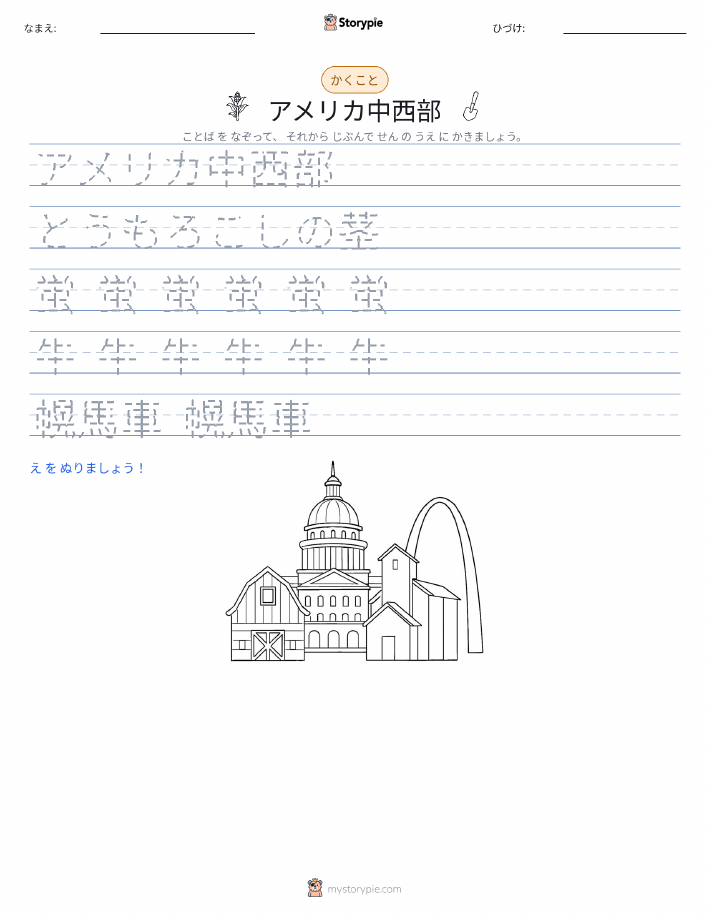 なまえ:
Storypie
ひづけ:
かくこと
アメリカ中西部
ことば を なぞって、 それから じぶんで せん の うえ に かきましょう。
アメリカ中西部
とうもろこしの茎
蛍 蛍 蛍 蛍 蛍 蛍
牛 牛 牛 牛 牛 牛
幌馬車 幌馬車
え を ぬりましょう！
mystorypie.com